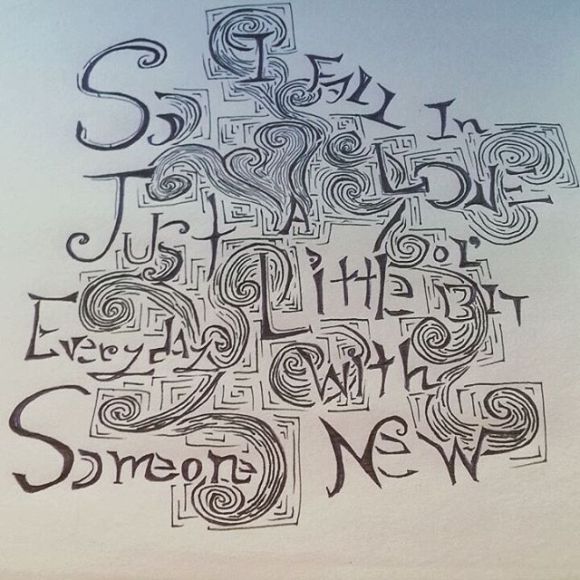 So I Fall In
Love
Just A
Little ol' Bit
Everyday With
Someone New